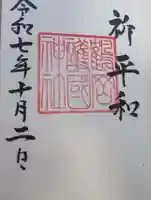 祈平和
護國
神社
令和七年十月二日